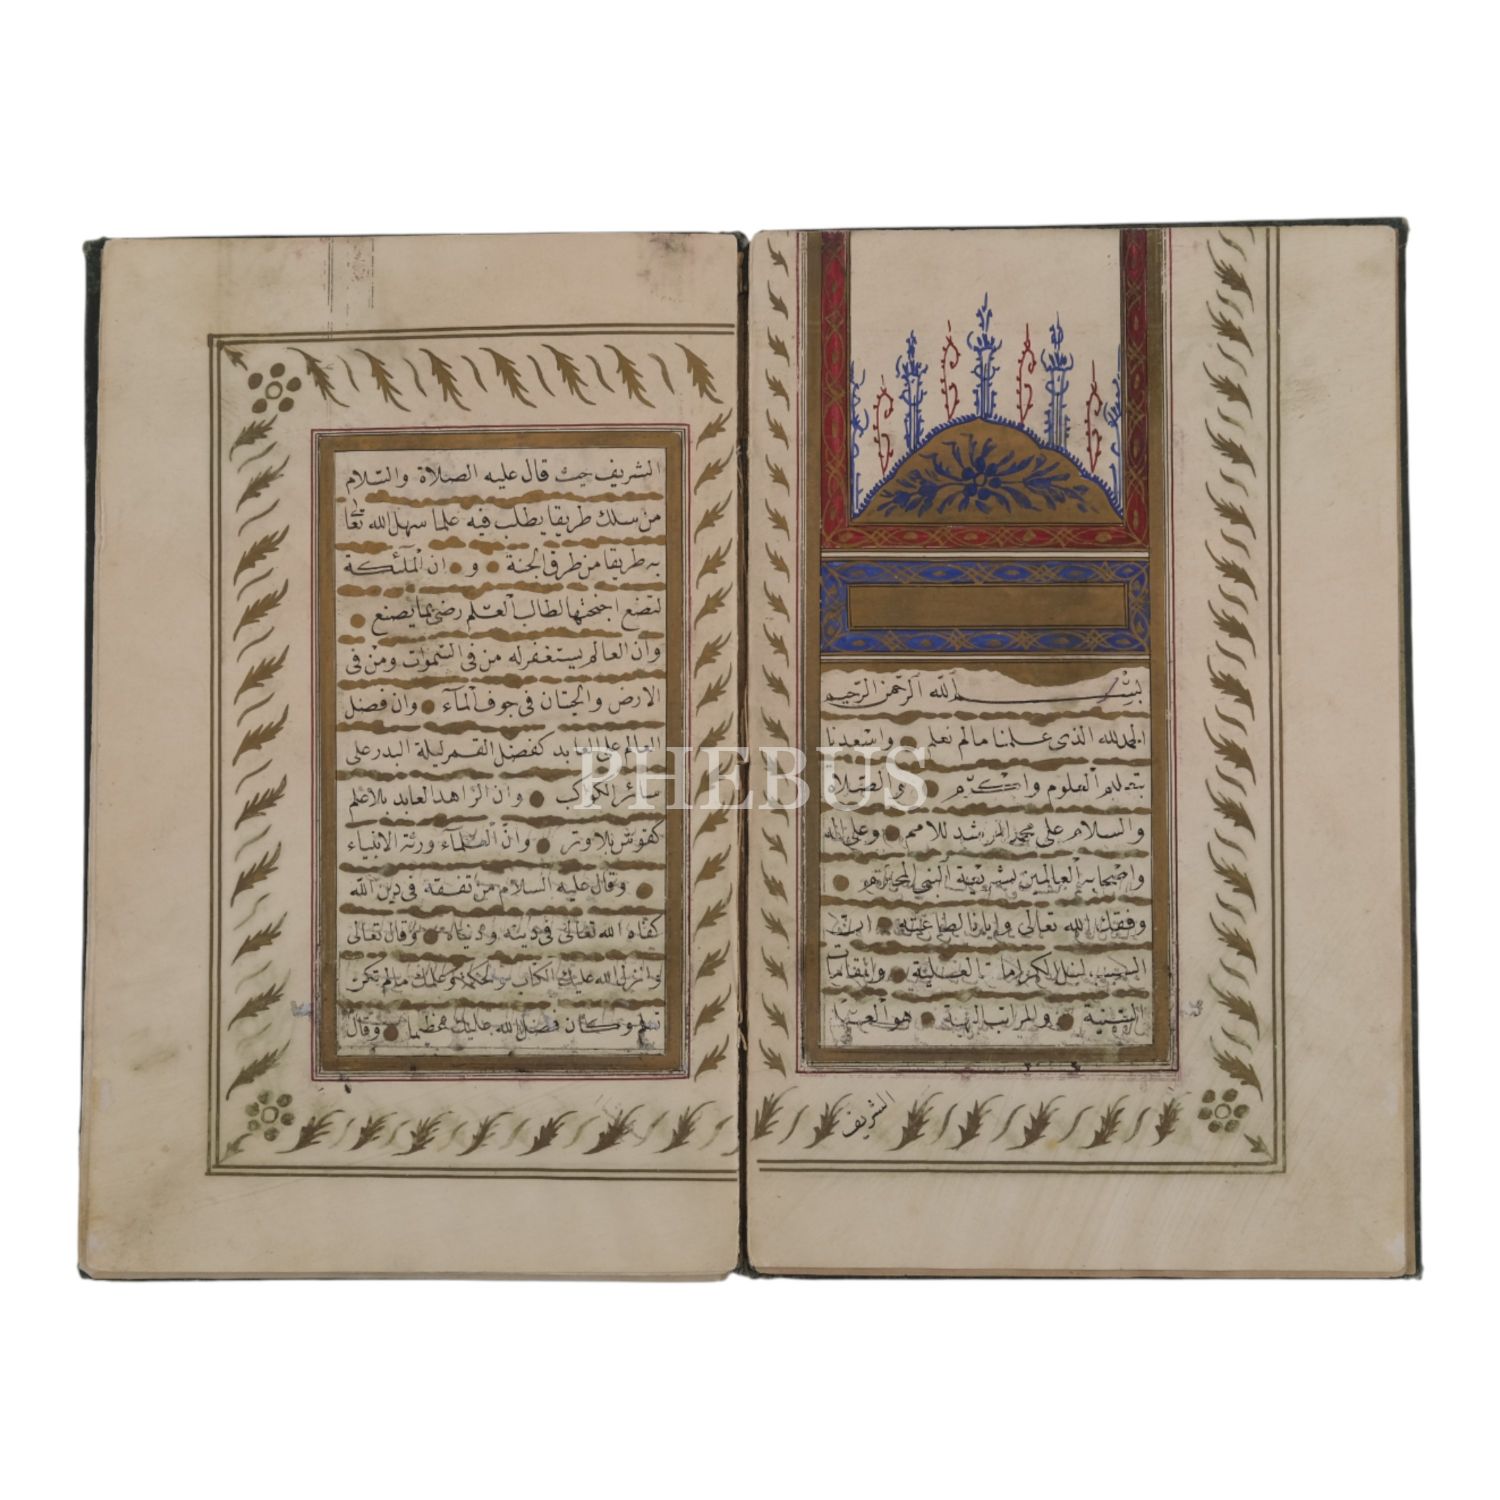 بسم الله الرحمن الرحيم
الحمد لله الذى علمنا مالم نعلم واسعدنا
العلوم والصلاة
والسلام على محمد المرشد للامم وعلى اله
واصحابه العالمين بشريعة النبى
وفقك الله تعالى وايانا لطاعته
لنيل الكرامات العلية والمقامات
السنية والمراتب البهية هو العلم
الشريف
الشريف حيث قال عليه الصلاة والسلام
من سلك طريقا يطلب فيه علما سهل الله تعا
به طريقا من طرق الجنة و وان الملئكة
لتضع اجنحتها لطالب العلم رضى بما يصنع
وان العالم يستغفر له من فى السموات ومن فى
الارض والحيتان فى جوف الماء وان فضل
العالم على العابد كفضل القمر ليلة البدر على
سائر الكواكب وان الزاهد العابد بلا علم
كقوس بلا وتر وان العلماء ورثة الانبياء
وقال عليه السلام من تفقه فى دين الله
كفاه الله تعالى فى دينه ودنياه وقال تعالى
وانزل الله عليك الكتاب والحكمة وعلمك مالم تكن
تعلم وكان فضل الله عليك عظيما وقال
PHEBUS